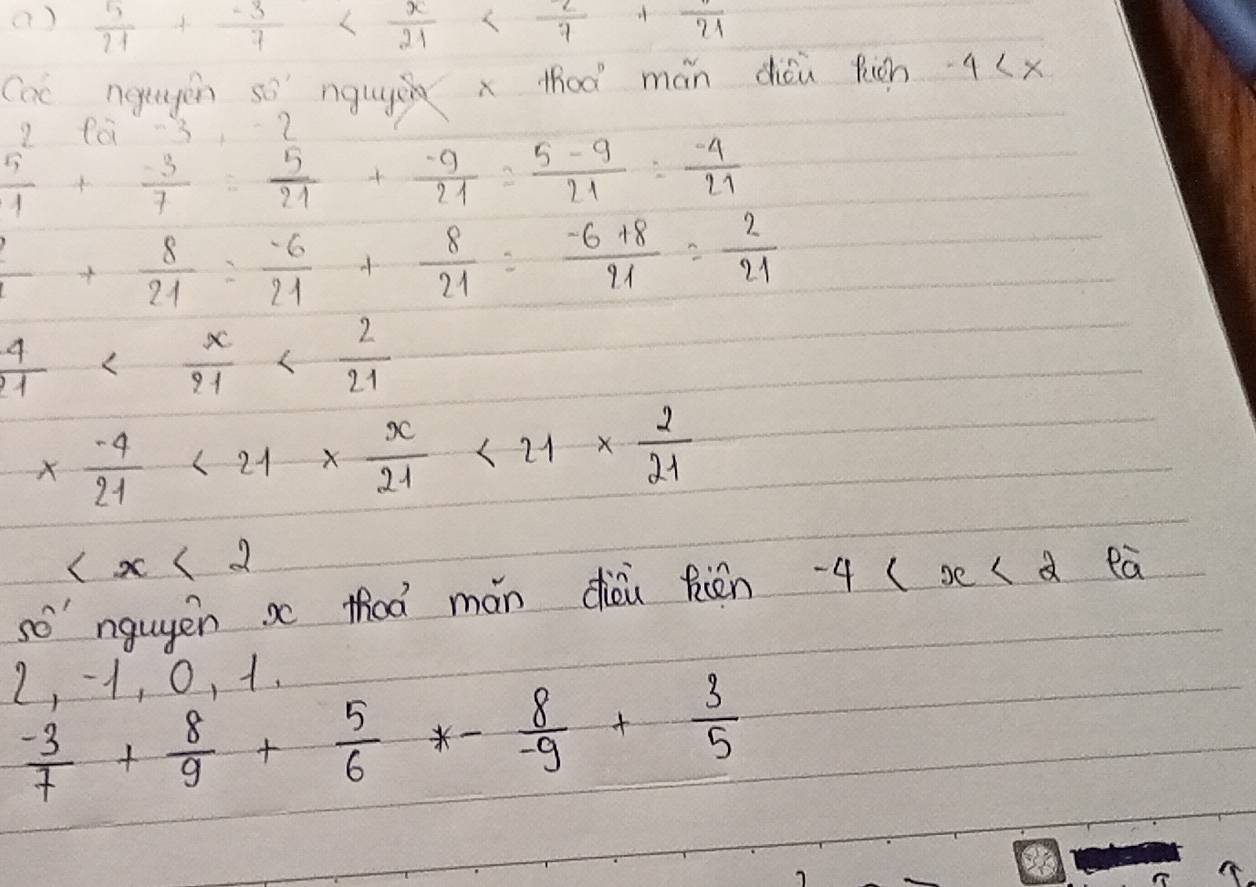 a) 5/21 + -3/7 < x/21 < 2/7 + /21
Các nguyên số nguyên x thoả mãn điều kiện -4 < x
2 là -3, -2
5/1 + -3/7 = 5/21 + -9/21 = 5-9/21 = -4/21
+ 8/21 = -6/21 + 8/21 = -6+8/21 = 2/21
-4/21 < x/21 < 2/21
× -4/21 < 21 × x/21 < 21 × 2/21
< x < 2
số nguyên x thoả mãn điều kiện -4 < x < 2 là
2, -1, 0, 1.
-3/7 + 8/9 + 5/6 * - 8/-9 + 3/5